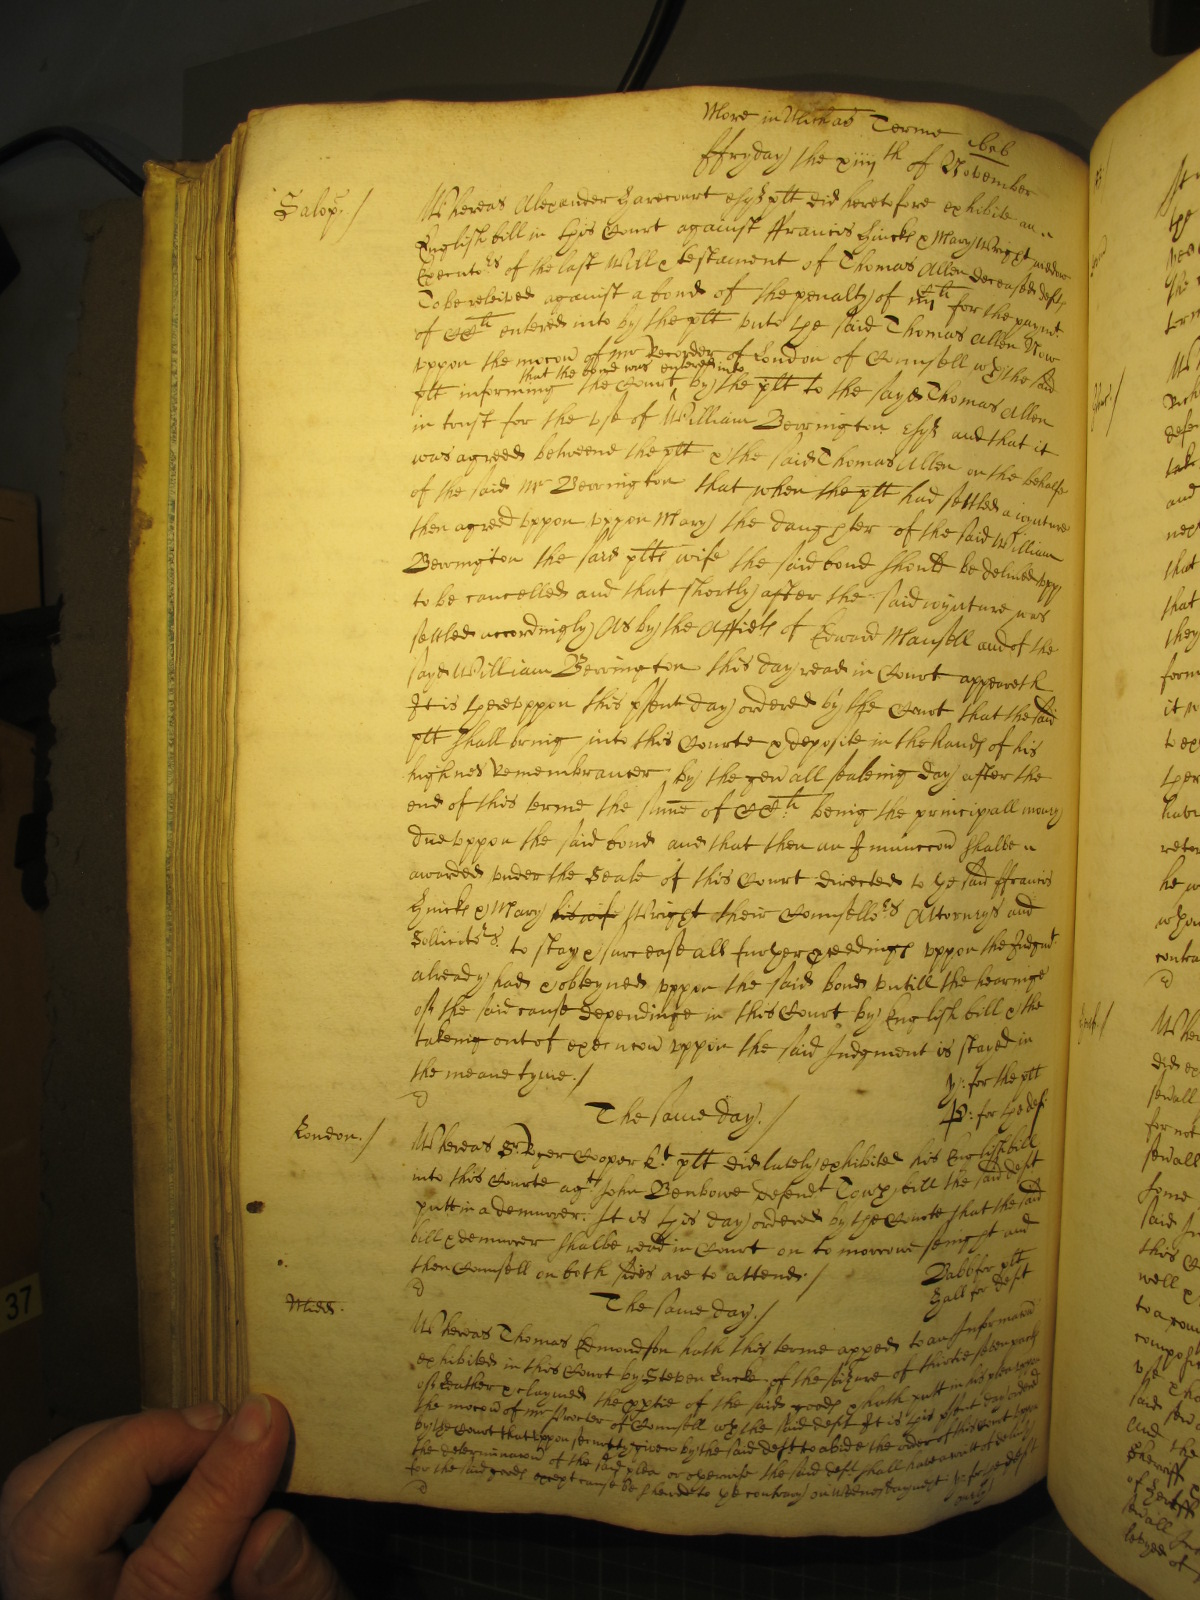 More in Michas Terme 1656
ffryday the xiiijth of November
Salop /
Whereas Alexander Harecourt esqr plt did heretofore exhibite an
English bill in this Court against ffrancis Hincks & Mary Wright widow
Executors of the last Will & testament of Thomas Allen deceased defts
To be releived against a bond of the penalty of for the paymt
of CCli entered into by the plt unto the said Thomas Allen Now
uppon the mocon of mr Recorder of London of Counsell wth the said
that the bond was entered into
plt informing the Court ^ by the plt to the sayd Thomas Allen
in trust for the use of William Berrington esqr and that it
was agreed betweene the plt & the said Thomas Allen on the behalfe
of the said mr Berrington that when the plt had settled a ioynture
then agreed uppon uppon Mary the daughter of the said William
Berrington the said plts wife the said bond should be delivered upp
to be cancelled and that shortly after the said ioynture was
settled accordingly As by the Affidts of Edward Mansell and of the
sayd William Berrington this day read in Court appeareth
It is thereuppon this psent day ordered by the Court that the said
plt shall bring into this Courte & deposite in the hands of his
highnes Remembrancer by the genall sealeing day after the
end of this terme the sume of CCli being the principall money
due uppon the said bond and that then an Iniunccon shalbe
awarded under the Seale of this Court directed to the said ffrancis
Hincks & Mary his wife Wright their Counsellors Attorneys and
Sollicitors to stay & surcease all further pceedings uppon the Judgmt
already had & obteyned uppon the said bond untill the hearinge
of the said cause dependinge in this Court by English bill & the
takeing out of execucon uppon the said Judgment is stayed in
the meane tyme. /
y: for the plt
P: for the deft
The same day. /
London. /
Whereas Sr Roger Cooper kt plt did lately exhibited his English bill
into this Courte agt John Benbowe defendt To wch bill the said deft
putt in a demurrer. It is this day ordered by the Courte that the said
bill & demurrer shalbe read in Court on to morrowe senight and
then Counsell on both sides are to attend. /
Babb for plt
Hall for deft
The same day. /
Midd.
Whereas Thomas Edmondson hath this terme apped to an Informacon
exhibited in this Court by Steven Lucke of the seizure of thirtie seven packs
of Leather & claymed the pptie of the said goods & hath putt in his plea uppon
the mocon of mr Procter of Counsell wth the said deft It is this psent day ordered
by the Court that uppon security given by the said deft to abide the order of this Court uppon
the determinacon of the said plea or otherwise the said deft shall have a writt of delivy
for the said goods except cause be shewed to the contrary on Wednesday next. y: for the deft
only